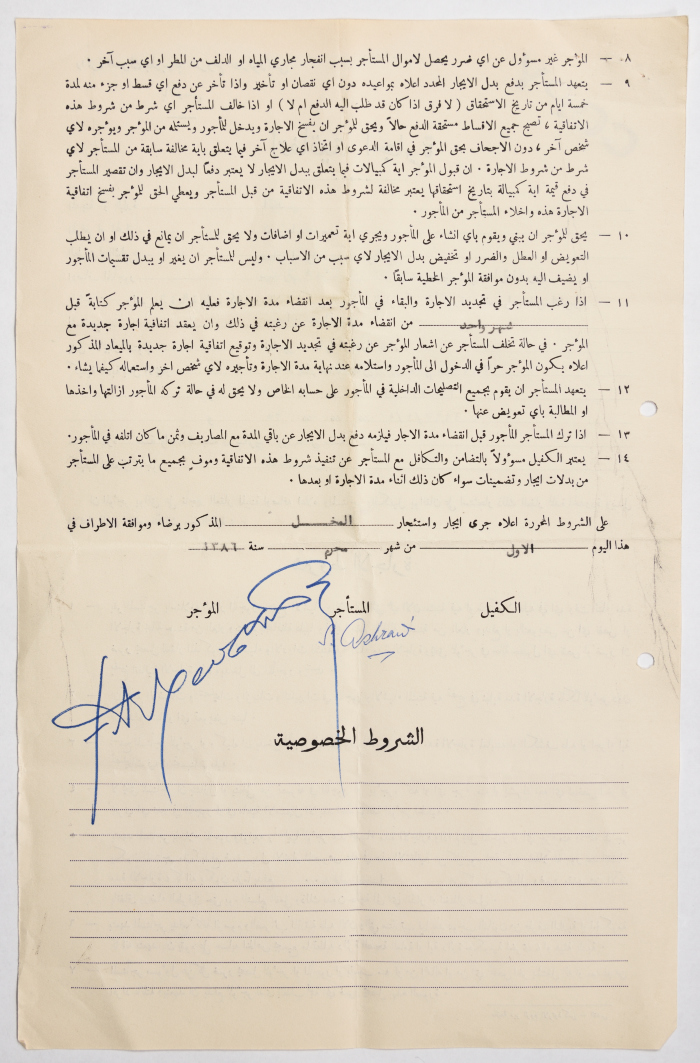 ٨ – المؤجر غير مسؤول عن اي ضرر يحصل لاموال المستأجر بسبب انفجار مجاري المياه او الدلف من المطر او اي سبب آخر ٠
٩ – يتعهد المستأجر بدفع بدل الايجار المحدد اعلاه بمواعيده دون اي نقصان او تأخير واذا تأخر عن دفع اي قسط او جزء منه لمدة
خمسة ايام من تاريخ الاستحقاق ( لا فرق اذا كان قد طلب اليه الدفع ام لا ) او اذا خالف المستأجر أي شرط من شروط هذه
الاتفاقية ، تصبح جميع الاقساط مستحقة الدفع حالاً ويحق للمؤجر ان يفسخ الاجارة ويدخل للمأجور ويستلمه من المؤجر ويؤجره لاي
شخص آخر ، دون الاجحاف بحق المؤجر في اقامة الدعوى او اتخاذ اي علاج آخر فيما يتعلق باية مخالفة سابقة من المستأجر لاي
شرط من شروط الاجارة ٠ ان قبول المؤجر اية كمبيالات فيما يتعلق ببدل الايجار لا يعتبر دفعاً لبدل الايجار وان تقصير المستأجر
في دفع قيمة اية كمبيالة بتاريخ استحقاقها يعتبر مخالفة لشروط هذه الاتفاقية من قبل المستأجر ويعطي الحق للمؤجر بفسخ اتفاقية
الاجارة هذه واخلاء المستأجر من المأجور ٠
١٠ – يحق للمؤجر ان يبني ويقوم باي انشاء على المأجور ويجري اية تعميرات او اضافات ولا يحق للمستأجر ان يمانع في ذلك او ان يطلب
التعويض او العطل والضرر او تخفيض بدل الايجار لاي سبب من الاسباب ٠ وليس للمستأجر ان يغير او يبدل تقسيمات المأجور
او يضيف اليه بدون موافقة المؤجر الخطية سابقاً ٠
١١ – اذا رغب المستأجر في تجديد الاجارة والبقاء في المأجور بعد انقضاء مدة الاجارة فعليه ان يعلم المؤجر كتابةً قبل
شهر واحد من انقضاء مدة الاجارة عن رغبته في ذلك وان يعقد اتفاقية اجارة جديدة مع
المؤجر ٠ في حالة تخلف المستأجر عن اشعار المؤجر عن رغبته في تجديد الاجارة وتوقيع اتفاقية اجارة جديدة بالميعاد المذكور
اعلاه يكون المؤجر حراً في الدخول الى المأجور واستلامه عند نهاية مدة الاجارة وتأجيره لاي شخص اخر واستعماله كيفما يشاء ٠
١٢ – يتعهد المستأجر ان يقوم بجميع التصليحات الداخلية في المأجور على حسابه الخاص ولا يحق له في حالة تركه المأجور ازالتها واخذها
او المطالبة باي تعويض عنها ٠
١٣ – اذا ترك المستأجر المأجور قبل انقضاء مدة الاجار فيلزمه دفع بدل الايجار عن باقي المدة مع المصاريف وثمن ما كان اتلفه في المأجور٠
١٤ – يعتبر الكفيل مسؤولاً بالتضامن والتكافل مع المستأجر عن تنفيذ شروط هذه الاتفاقية وموفٍ بجميع ما يترتب على المستأجر
من بدلات ايجار وتضمينات سواء كان ذلك اثناء مدة الاجارة او بعدها ٠
على الشروط المحررة اعلاه جرى ايجار واستئجار المذكور برضاء وموافقة الاطراف في
هذا اليوم الاول من شهر محرم سنة ١٣٨٦
الكفيل المستأجر المؤجر
S. Ashrawi
الشروط الخصوصية